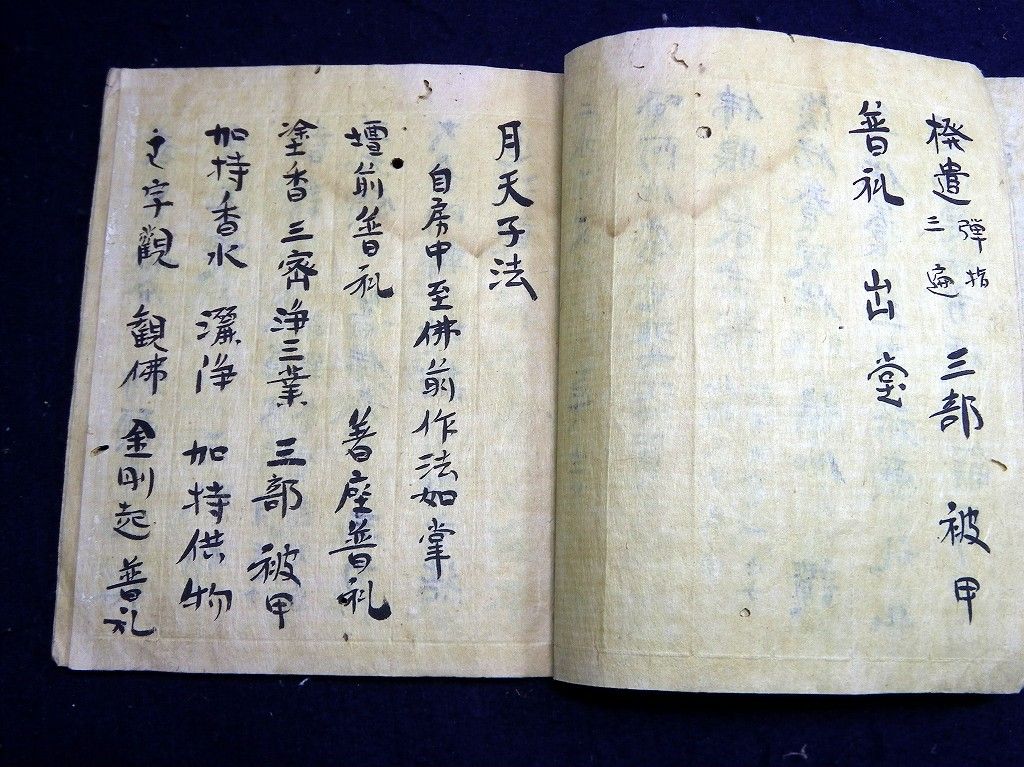 撥遣 弾指三遍 三部 被甲
普礼 出堂
月天子法
自房中至佛前作法如掌
壇前普礼 着座普礼
塗香 三密浄三業 三部 被甲
加持香水 灑浄 加持供物
字觀 観佛 金剛起 普礼